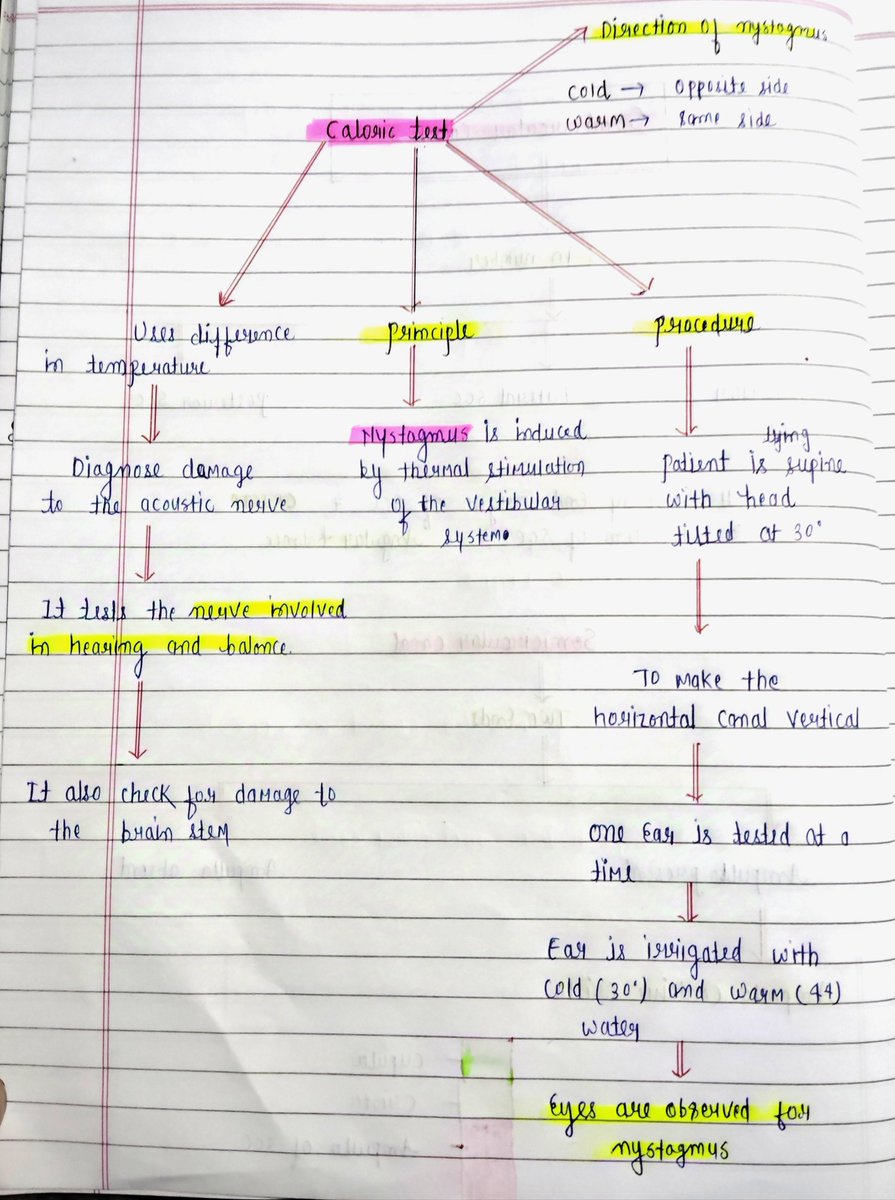 Direction of nystagmus
cold → opposite side
warm → same side
Caloric test
Uses difference
in temperature
Diagnose damage
to the acoustic nerve
It tests the nerve involved
in hearing and balance.
It also check for damage to
the brain stem
Principle
Nystagmus is induced
by thermal stimulation
of the vestibular
system.
Procedure
lying
patient is supine
with head
tilted at 30°
To make the
horizontal canal vertical
One Ear is tested at a
time
Ear is irrigated with
cold (30°) and warm (44)
water
Eyes are observed for
nystagmus